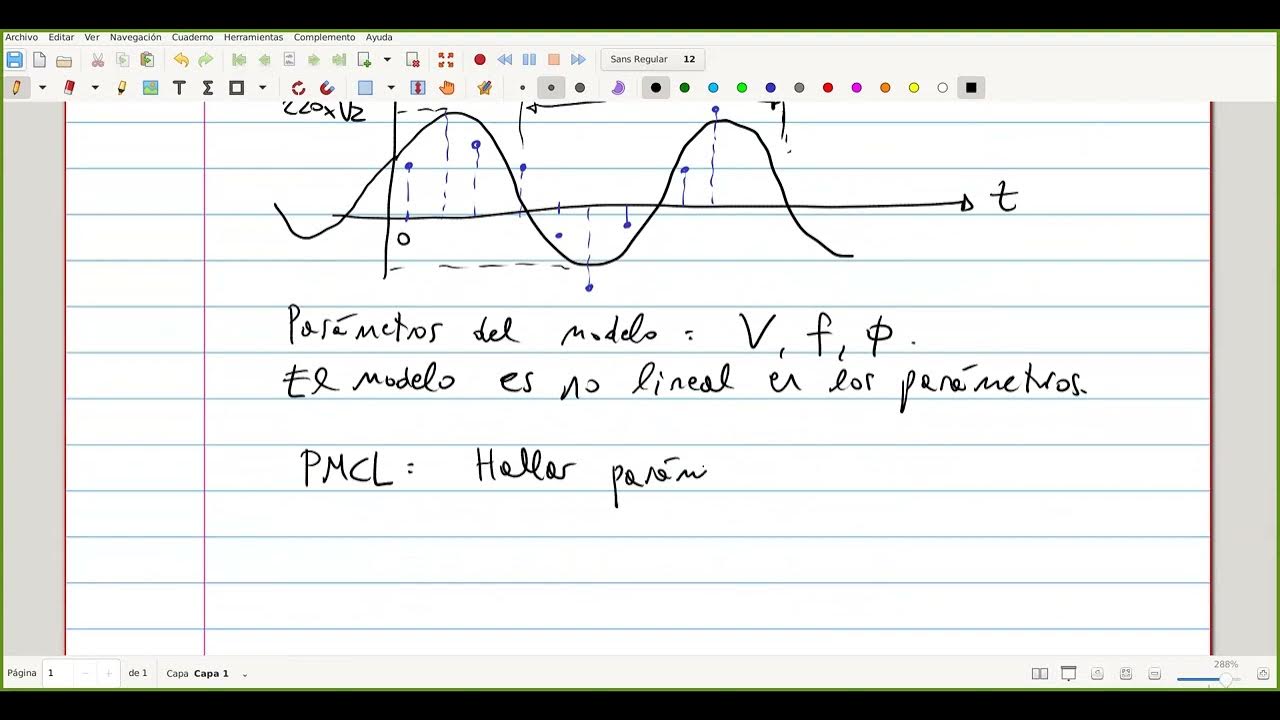 Archivo Editar Ver Navegación Cuaderno Herramientas Complemento Ayuda
Sans Regular 12
220x√2
t
0
Parámetros del modelo: V, f, φ.
El modelo es no lineal en los parámetros.
PMCL: Hallar parám
Página 1 de 1 Capa Capa 1 288%